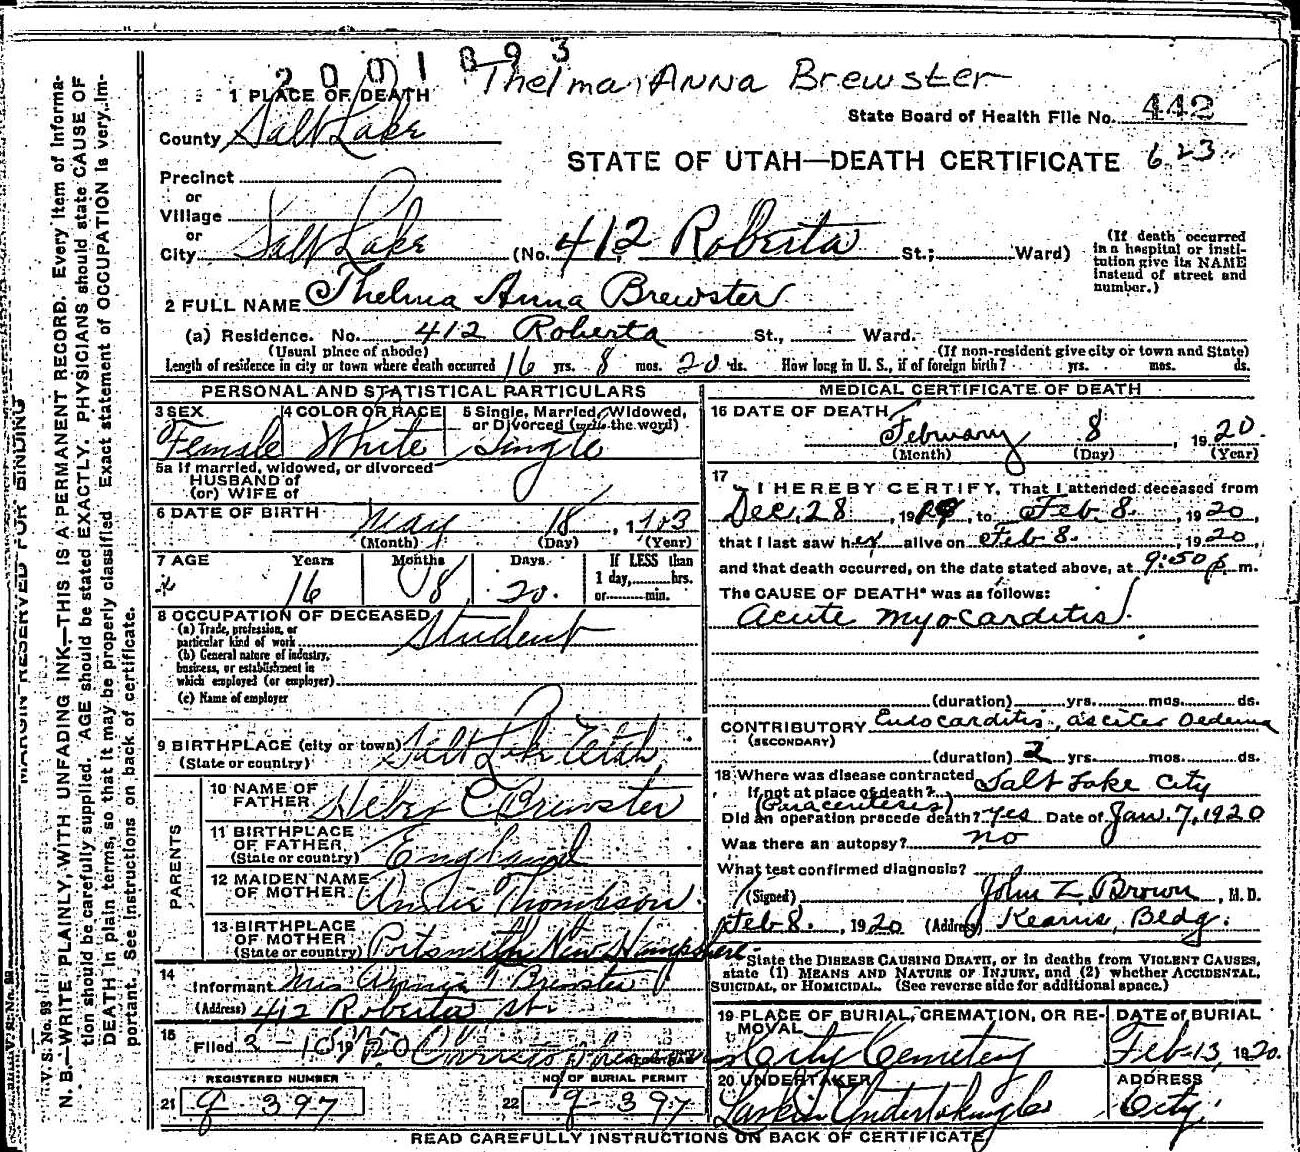 2001893
Thelma Anna Brewster
1 PLACE OF DEATH
State Board of Health File No. 442
County Salt Lake
STATE OF UTAH—DEATH CERTIFICATE 623
Precinct
or
Village
or
City Salt Lake (No. 412 Roberta St.; Ward)
(If death occurred in a hospital or institution give its NAME instead of street and number.)
2 FULL NAME Thelma Anna Brewster
(a) Residence. No. 412 Roberta St., Ward.
(Usual place of abode) (If non-resident give city or town and State)
Length of residence in city or town where death occurred 16 yrs. 8 mos. 20 ds. How long in U. S., if of foreign birth? yrs. mos. ds.
PERSONAL AND STATISTICAL PARTICULARS
3 SEX Female
4 COLOR OR RACE White
5 Single, Married, Widowed, or Divorced (write the word) Single
5a If married, widowed, or divorced
HUSBAND of
(or) WIFE of
6 DATE OF BIRTH May 18, 1903
(Month) (Day) (Year)
7 AGE Years Months Days If LESS than
16 8 20. 1 day, hrs.
or min.
8 OCCUPATION OF DECEASED
(a) Trade, profession, or particular kind of work Student
(b) General nature of industry, business, or establishment in which employed (or employer)
(c) Name of employer
9 BIRTHPLACE (city or town) Salt Lake Utah
(State or country)
PARENTS
10 NAME OF FATHER Heber C. Brewster
11 BIRTHPLACE OF FATHER England
(State or country)
12 MAIDEN NAME OF MOTHER Thompson
13 BIRTHPLACE OF MOTHER Portsmith New Hampshire
(State or country)
14 Informant Mrs T Brewster
(Address) 412 Roberta St.
15 Filed
REGISTERED NUMBER NO. OF BURIAL PERMIT
21 g-397 22 g-397
MEDICAL CERTIFICATE OF DEATH
16 DATE OF DEATH
February 8, 1920.
(Month) (Day) (Year)
17 I HEREBY CERTIFY, That I attended deceased from
Dec. 28, 1919, to Feb. 8., 1920,
that I last saw her alive on Feb 8., 1920,
and that death occurred, on the date stated above, at 9:50 p m.
The CAUSE OF DEATH* was as follows:
Acute myocarditis
(duration) yrs. mos. ds.
CONTRIBUTORY Endocarditis, ascites Oedema
(SECONDARY)
(duration) 2 yrs. mos. ds.
18 Where was disease contracted
If not at place of death? Salt Lake City
(Paracentesis)
Did an operation precede death? yes Date of Jan. 7, 1920
Was there an autopsy? no
What test confirmed diagnosis?
(Signed) John Z. Brown, M.D.
Feb 8., 1920 (Address) Kearns, Bldg.
*State the DISEASE CAUSING DEATH, or in deaths from VIOLENT CAUSES,
state (1) MEANS AND NATURE OF INJURY, and (2) whether ACCIDENTAL,
SUICIDAL, or HOMICIDAL. (See reverse side for additional space.)
19 PLACE OF BURIAL, CREMATION, OR REMOVAL DATE of BURIAL
City Cemetery Feb-13, 1920.
20 UNDERTAKER ADDRESS
Larkin Undertaking Co City.
READ CAREFULLY INSTRUCTIONS ON BACK OF CERTIFICATE
MARGIN RESERVED FOR BINDING
V. S. No. 99
N. B.—WRITE PLAINLY, WITH UNFADING INK—THIS IS A PERMANENT RECORD. Every item of informa-
tion should be carefully supplied. AGE should be stated EXACTLY. PHYSICIANS should state CAUSE OF
DEATH in plain terms, so that it may be properly classified. Exact statement of OCCUPATION is very im-
portant. See instructions on back of certificate.